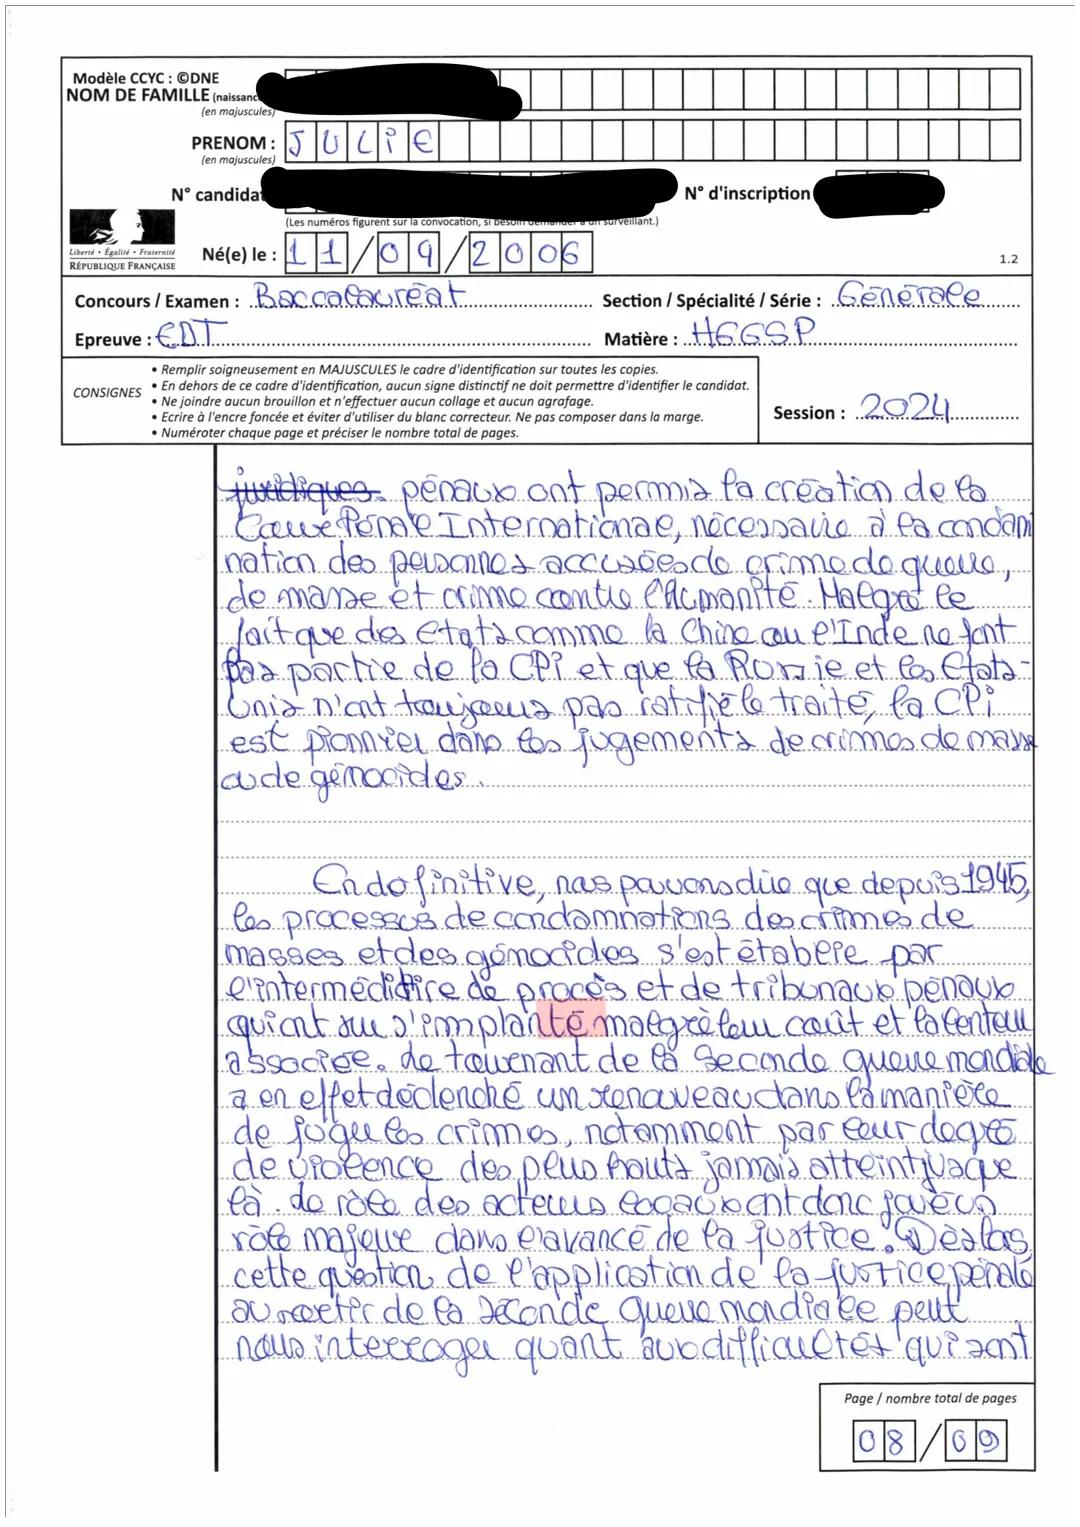 Modèle CCYC : ©DNE
NOM DE FAMILLE (naissanc
(en majuscules)
PRENOM : JULIE
(en majuscules)
N° candida
N° d'inscription
(Les numéros figurent sur la convocation, si besoin demander à un surveillant.)
Liberté • Égalité • Fraternité
RÉPUBLIQUE FRANÇAISE
Né(e) le : 11/09/2006
1.2
Concours / Examen : Baccalauréat Section / Spécialité / Série : Générale
Epreuve : EDT Matière : HGGSP
CONSIGNES
• Remplir soigneusement en MAJUSCULES le cadre d'identification sur toutes les copies.
• En dehors de ce cadre d'identification, aucun signe distinctif ne doit permettre d'identifier le candidat.
• Ne joindre aucun brouillon et n'effectuer aucun collage et aucun agrafage.
• Ecrire à l'encre foncée et éviter d'utiliser du blanc correcteur. Ne pas composer dans la marge.
• Numéroter chaque page et préciser le nombre total de pages.
Session : 2024
juridiques pénaux ont permis la création de la
Cour Pénale Internationale, nécessaire à la condam
nation des personnes accusées de crime de guerre,
de masse et crime contre l'Humanité. Malgré le
fait que des Etats comme la Chine ou l'Inde ne font
pas partie de la CPI et que la Russie et les Etats-
Unis n'ont toujours pas ratifié le traité, la CPI
est pionnier dans les jugements de crimes de masse
ou de génocides.
En définitive, nous pouvons dire que depuis 1945,
les processus de condamnations des crimes de
masses et des génocides s'est établie par
l'intermédiaire de procès et de tribunaux pénaux
qui ont su s'implanté malgré leur coût et la lenteur
associée. Le tournant de la Seconde guerre mondiale
a en effet déclenché un renouveau dans la manière
de juger les crimes, notamment par leur degré
de violence des plus hauts jamais atteint jusque
là. Le rôle des acteurs locaux ont donc joué un
rôle majeur dans l'avancé de la justice. Dès lors,
cette question de l'application de la justice pénale
au sortir de la Seconde guerre mondiale peut
nous interroger quant aux difficultés qui sont
Page / nombre total de pages
08/09